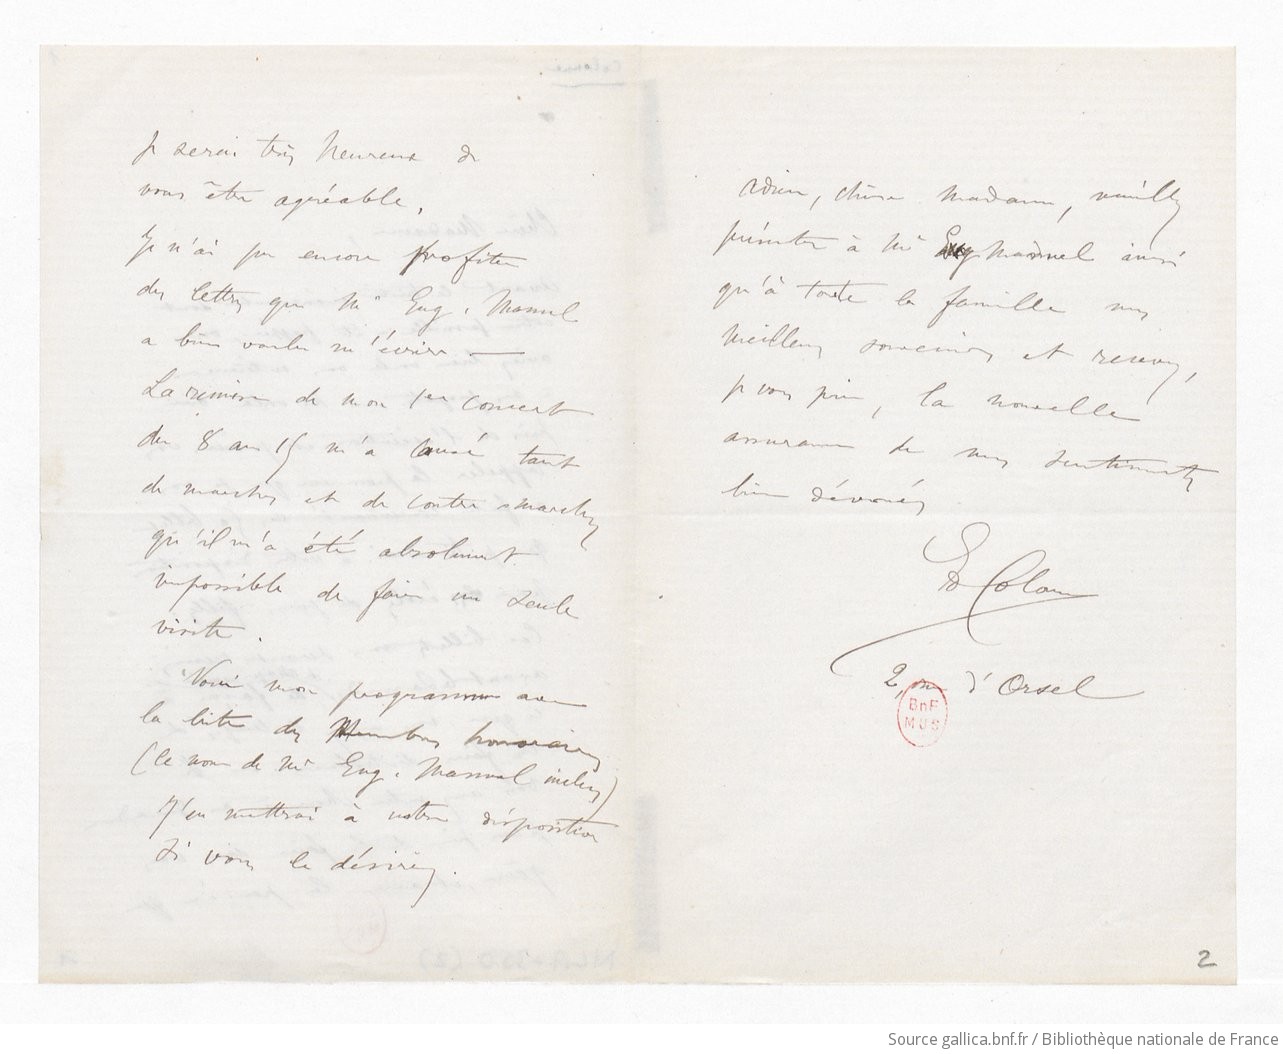 Je serai très heureux de
vous être agréable.
Je n'ai pu encore profiter
des lettres que Mr Eug. Manuel
a bien voulu m'écrire. —
La remise de mon 1er concert
du 8 au 15 m'a causé tant
de marches et de contre marches
qu'il m'a été absolument
impossible de faire une seule
visite.
Voici mon programme avec
la liste des Membres honoraires
(le nom de Mr Eug. Manuel inclus)
J'en mettrai à votre disposition
si vous le désirez.
Adieu, chère Madame, veuillez
présenter à Mr Eug Manuel ainsi
qu'à toute la famille mes
meilleurs souvenirs et recevez,
je vous prie, la nouvelle
assurance de mes sentiments
bien dévoués
Ed Colonne
2, rue d'Orsel
BnF
MUS
2
Source gallica.bnf.fr / Bibliothèque nationale de France